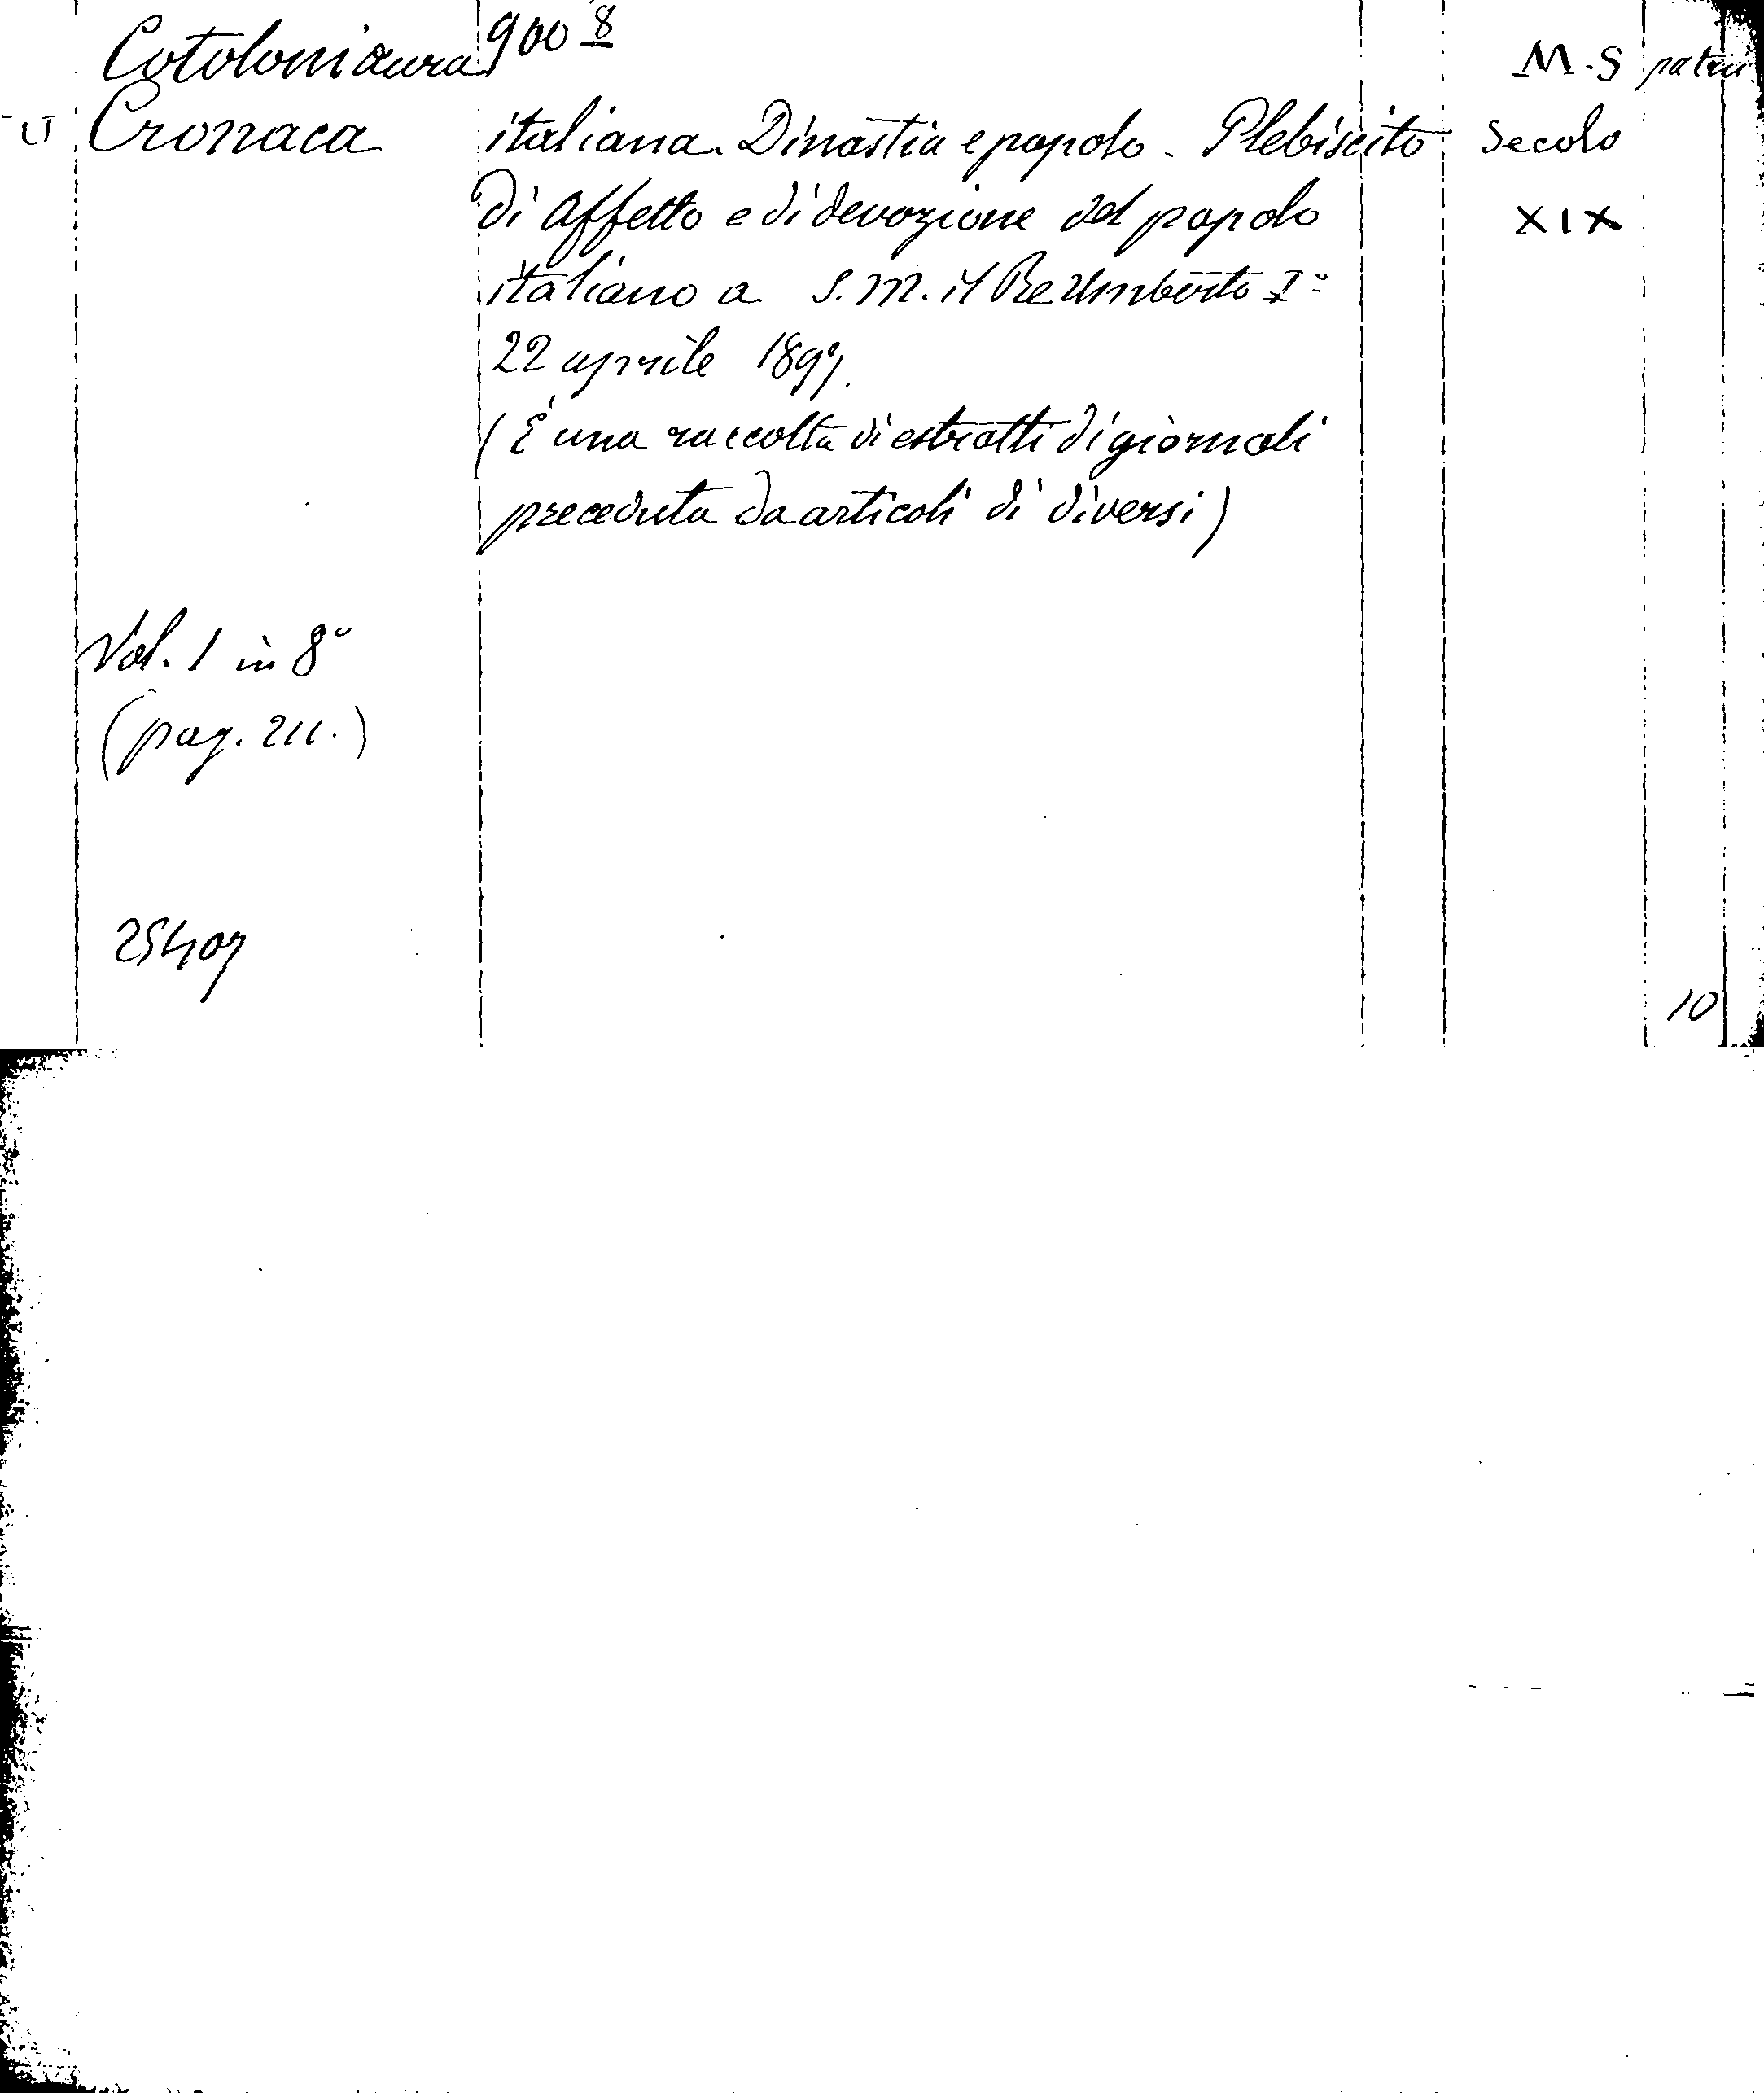 900 8
M.S patria
Cronaca italiana. Dinastia e popolo. Plebiscito Secolo
di affetto e di devozione del popolo XIX
italiano a S. M. il Re Umberto I°
22 aprile 1897.
(È una raccolta di estratti di giornali
preceduta da articoli di diversi)
Vol. 1 in 8°
(pag. 211.)
25407
10